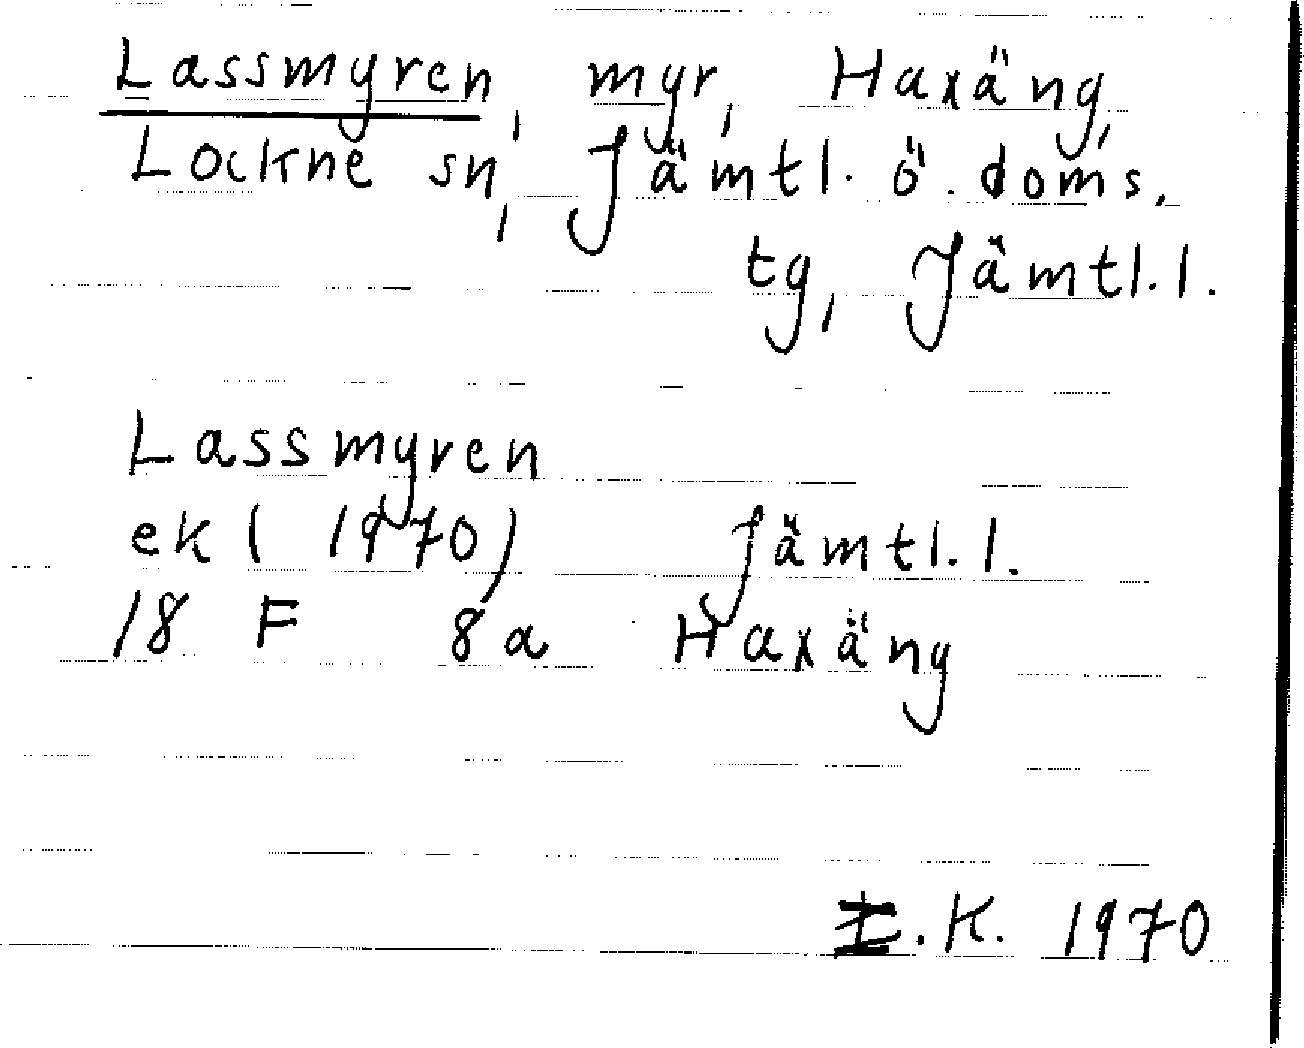 Lassmyren, myr, Haxäng,
Lockne sn, Jämtl. ö. doms.
tg, Jämtl. l.
Lassmyren
ek (1970) Jämtl. l.
18 F 8a Haxäng
E.K. 1970